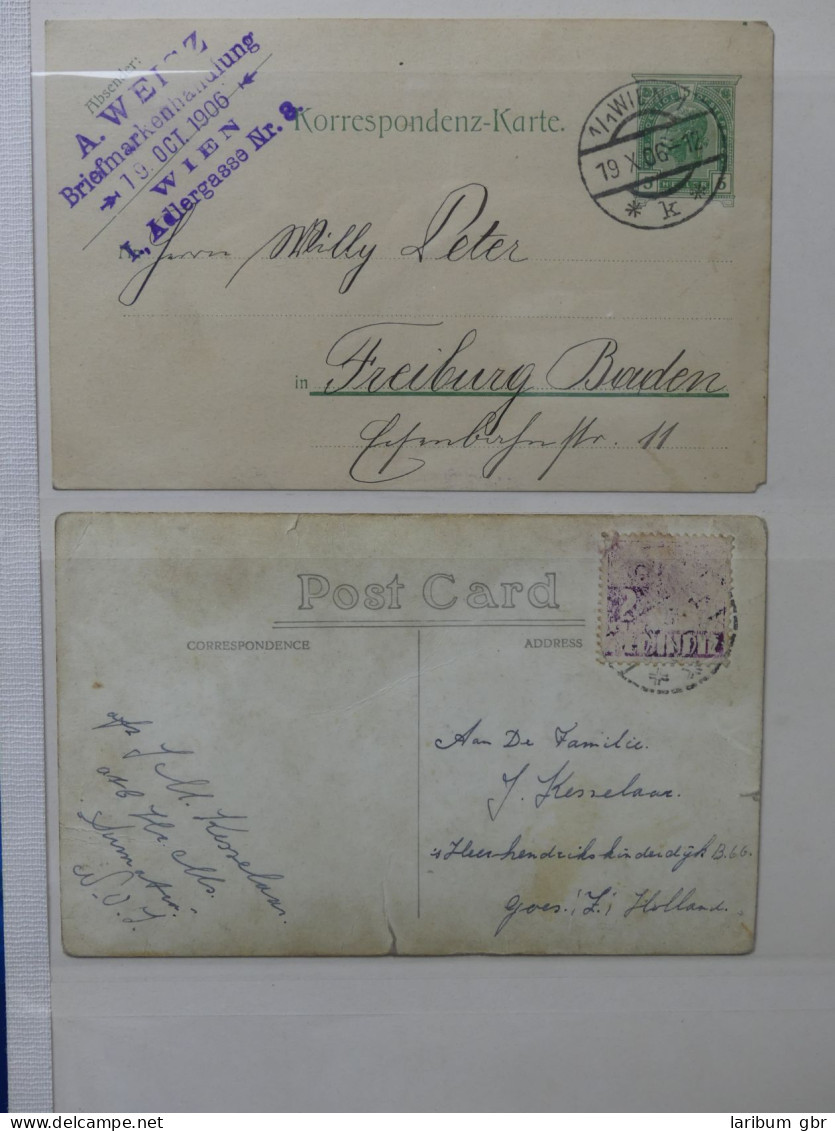 Absender:
A. WEISZ
Briefmarkenhandlung
19. OCT. 1906
WIEN
I., Adlergasse Nr. 8.
Korrespondenz-Karte.
1/1 WIEN 1
19 X 06-12
* k *
5 5
Herrn Willy Peter
in Freiburg Baden
Eisenbahnstr. 11
Post Card
CORRESPONDENCE
ADDRESS
Aan De Familie.
J. Kesselaar.
's Heer hendrikskinderdijk B.66.
Goes. Z. Holland.
afz J M. Kesselaar.
a/b Hr. Ms.
Sumatra.
N.O.I.
laribum gbr